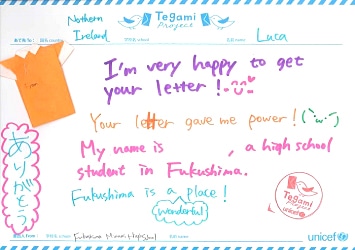 Tegami
Project
Northern
Ireland
Luca
I'm very happy to get
your letter!
Your letter gave me power!
My name is , a high school
student in Fukushima.
Fukushima is a place!
wonderful
ありがとう
Tegami
Project
unicef
unicef